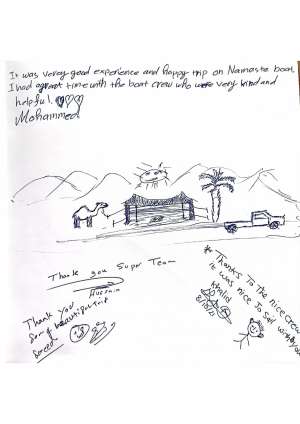 It was veray good experience and happy trip on Namaste boat,
I had agreat time with the boat crew who were very kind and
helpful.
Mohammed
Thank you Super Team
Hussain
Thank you
for beautiful trip
Saeed
* Thanks To the nice crew
it was nice to sail with you
Khalid